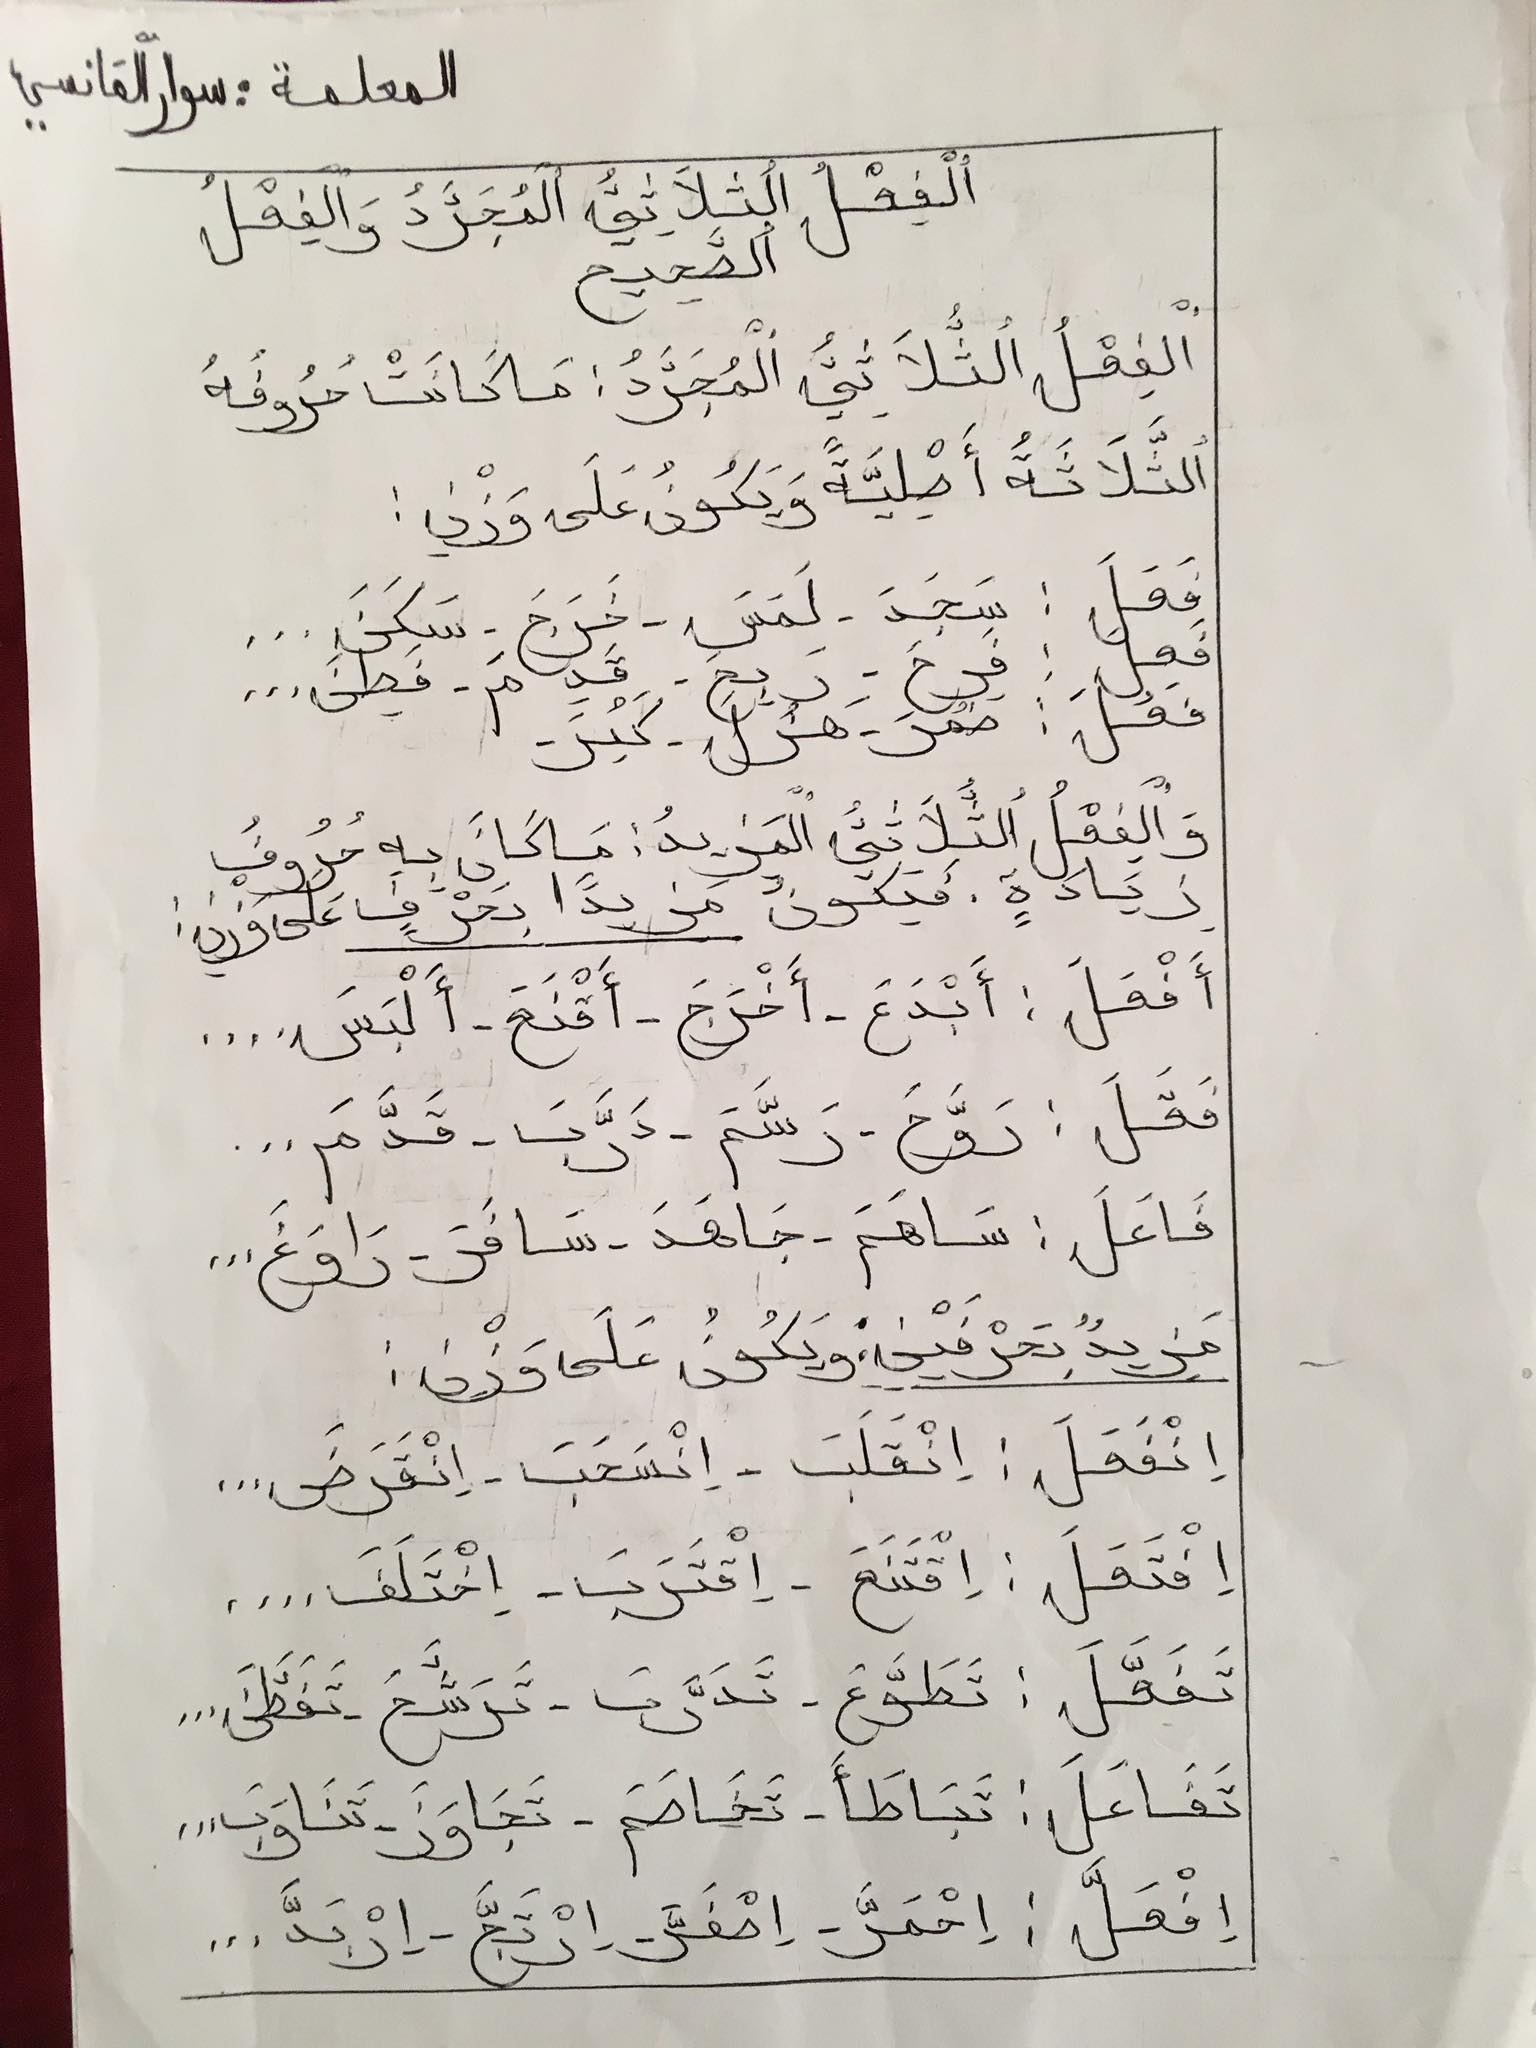 المعلمة : سوار القانسي
اَلْفِعْلُ اَلثُلاَثِيُّ اَلْمُجَرَّدُ وَالْفِعْلُ
اَلصَّحِيح
اَلْفِعْلُ اَلثُّلاَثِيُّ اَلْمُجَرَّدُ : مَا كَانَتْ حُرُوفُهُ
اَلثَّلَاثَةُ أَصْلِيَّةً وَيَكُونُ عَلَى وَزْنِ :
فَعَلَ : سَجَدَ - لَمَسَ - خَرَجَ - سَكَنَ ...
فَعِلَ : فَرِحَ - رَبِحَ - قَدِمَ - فَطِنَ ...
فَعُلَ : صَغُرَ - هَزُلَ - كَبُرَ -
وَالْفِعْلُ اَلثُّلَاثِيُّ الْمَزِيدُ : مَا كَانَ بِهِ حُرُوفُ
زِيَادَةٍ . فَيَكُونُ مَزِيدًا بِحَرْفٍ عَلَى وَزْنِ :
أَفْعَلَ : أَبْدَعَ - أَخْرَجَ - أَقْنَعَ - أَلْبَسَ ....
فَعَّلَ : رَوَّحَ - رَسَّمَ - دَرَّبَ - قَدَّمَ ...
فَاعَلَ : سَاهَمَ - جَاهَدَ - سَافَرَ - رَاوَغَ ...
مَزِيدٌ بِحَرْفَيْنِ : وَيَكُونُ عَلَى وَزْنِ :
اِنْفَعَلَ : اِنْقَلَبَ - اِنْسَحَبَ - اِنْقَرَضَ ...
اِفْتَعَلَ : اِقْتَنَعَ - اِقْتَرَبَ - اِخْتَلَفَ ....
تَفَعَّلَ : تَطَوَّعَ - تَدَرَّبَ - تَرَشَّحَ - تَفَطَّنَ ...
تَفَاعَلَ : تَبَاطَأَ - تَخَاصَمَ - تَجَاوَزَ - تَنَاوَبَ ...
اِفْعَلَّ : اِحْمَرَّ - اِصْفَرَّ - اِرْتَجَّ - اِرْبَدَّ ...